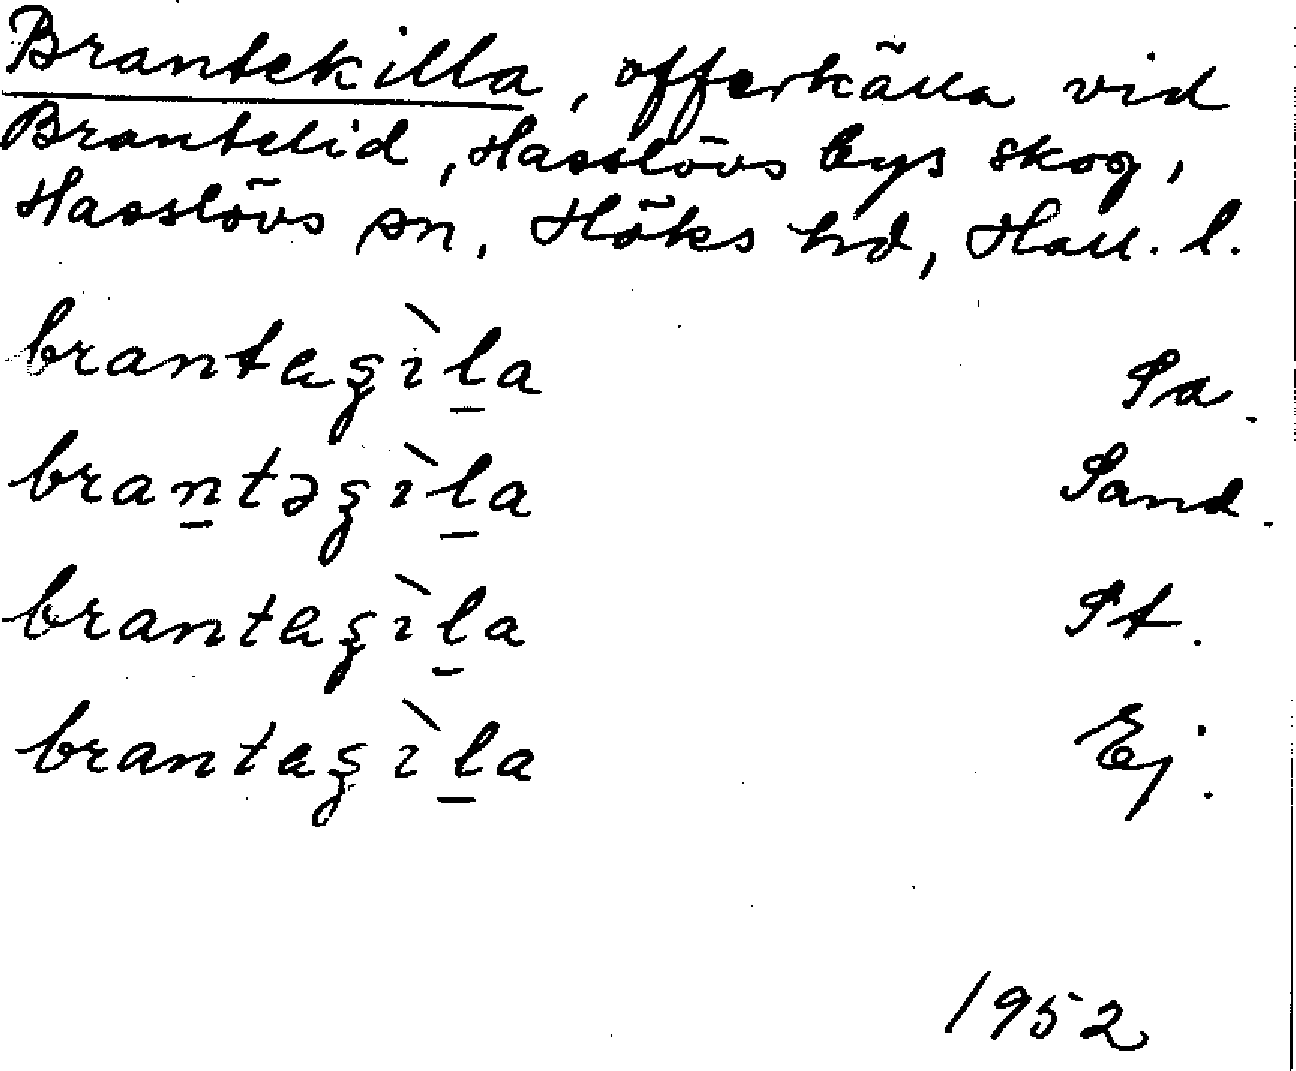 Brantekilla, offerkälla vid
Brantelid, Hasslövs bys skog,
Hasslövs sn, Höks hd, Hall. l.
brantaʂìl̲a Sa.
bran̲təʂìl̲a Sand.
brantaʂìl̲a St.
brantaʂìl̲a Ej.
1952